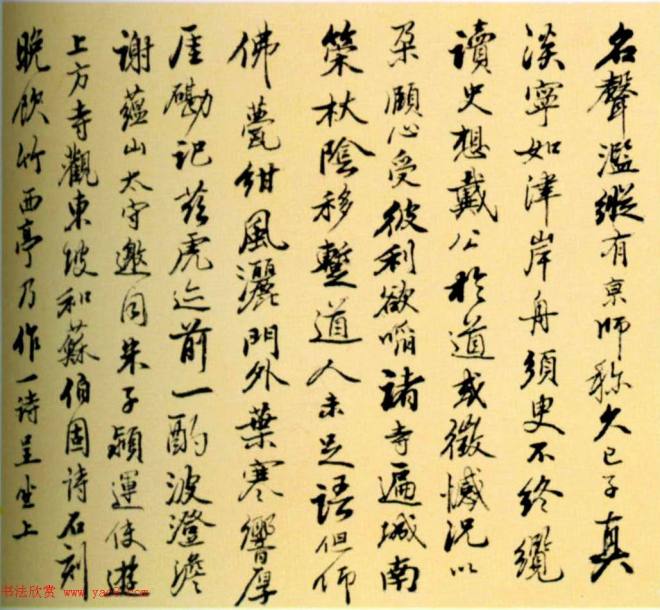 名聲濫縱有京師稱久已子真
淡寧如津岸舟須臾不終纜
讀史想戴公於道或微憾況以
朶頤心受彼利欲啗諸寺遍城南
策杖陰移蹔道人未足語但仰
佛甍紺風灑門外葉寒響厚
厓磡記茲虎迹前一酌波澄澹
謝蘊山太守邀同朱子潁運使遊
上方寺觀東坡和蘇伯固詩石刻
晚飲竹西亭乃作一詩呈坐上
书法欣赏